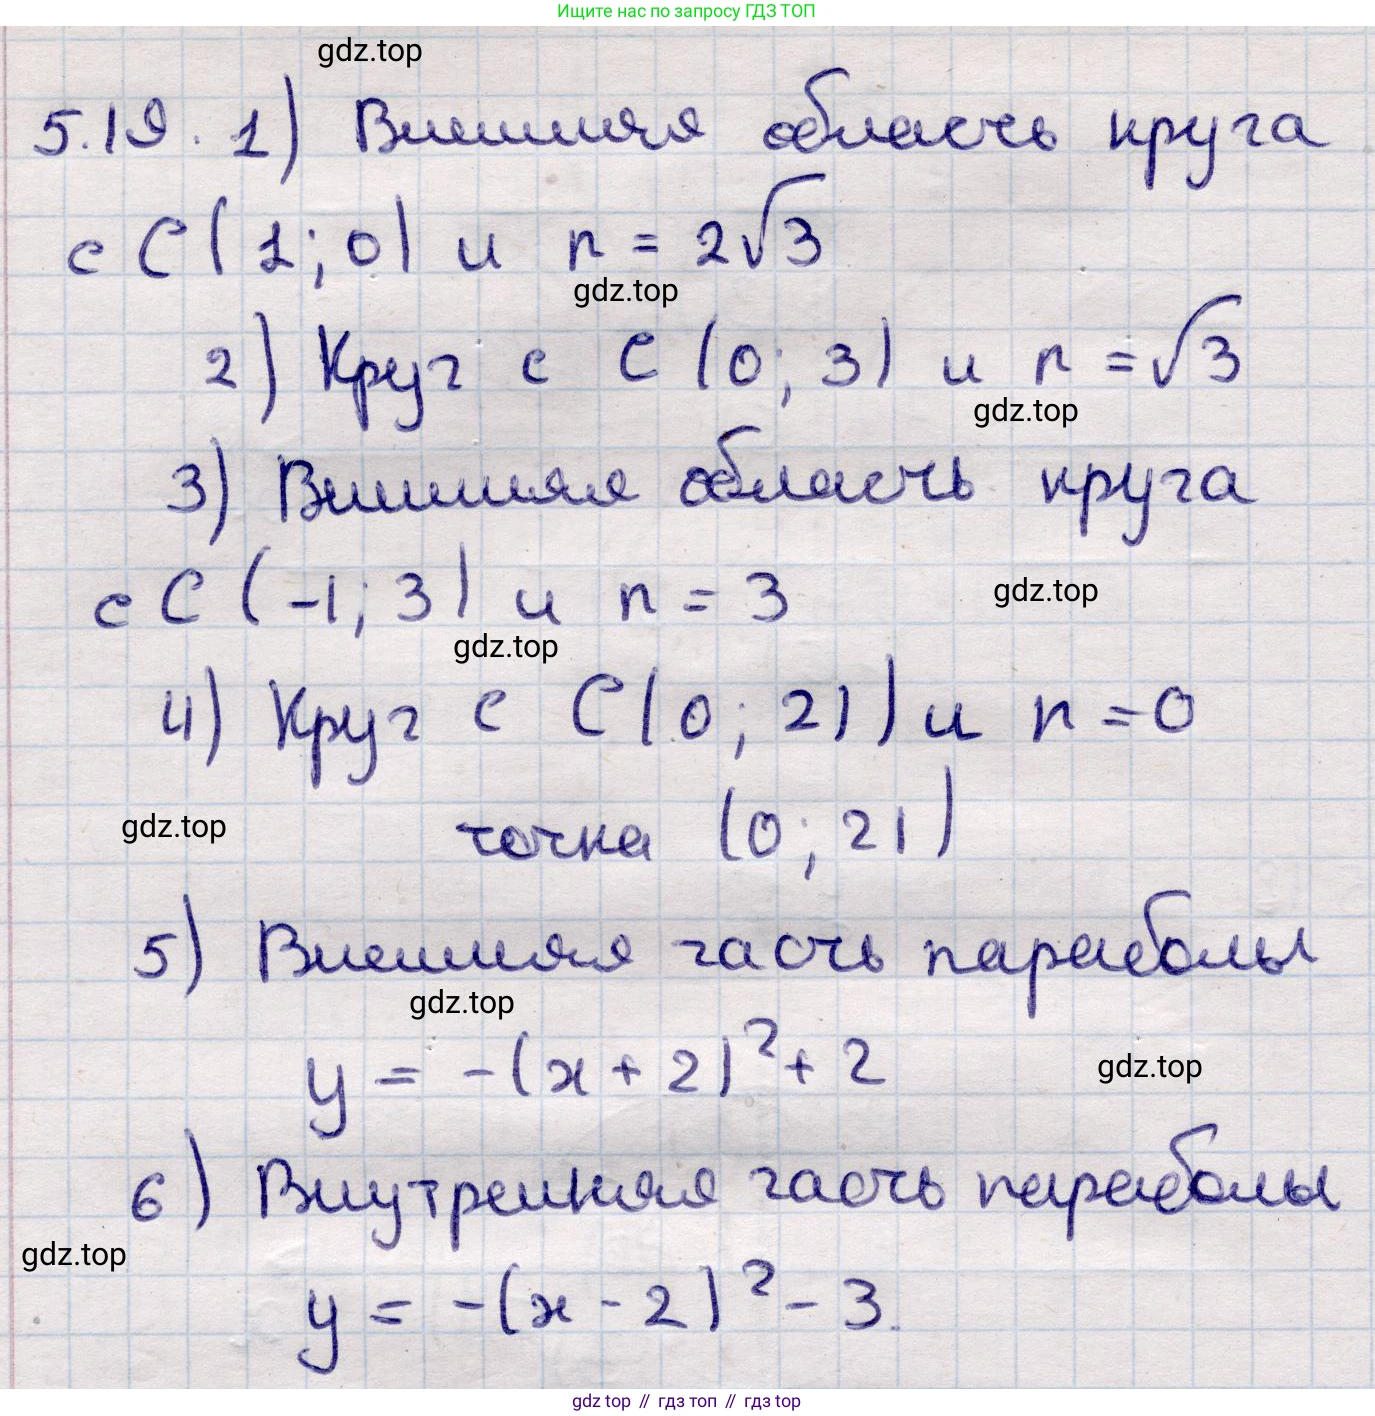 Ищите нас по запросу ГДЗ ТОП
gdz.top
5.19. 1) Внешняя область круга
с C(1; 0) и r = 2√3
gdz.top
2) Круг с C(0; 3) и r = √3
gdz.top
3) Внешняя область круга
с C(-1; 3) и r = 3
gdz.top
gdz.top
4) Круг с C(0; 21) и r = 0
gdz.top
точка (0; 21)
5) Внешняя часть параболы
gdz.top
y = -(x + 2)² + 2
gdz.top
6) Внутренняя часть параболы
gdz.top
y = -(x - 2)² - 3.
gdz top // гдз топ // gdz.top